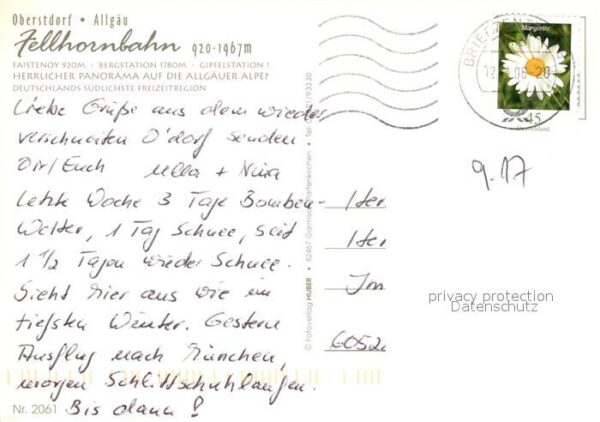 Oberstdorf • Allgäu
Fellhornbahn 920-1967m
FAISTENOY 920M • BERGSTATION 1780M • GIPFELSTATION
HERRLICHER PANORAMA AUF DIE ALLGÄUER ALPEN
DEUTSCHLANDS SÜDLICHSTE FREIZEITREGION
Liebe Grüße aus dem wieder
verschneiten O'dorf senden
Dir/Euch Ulla + Nina
Letzte Woche 3 Tage Bomben-
Wetter, 1 Tag Schnee, seit
1 1/2 Tagen wieder Schnee.
Sieht hier aus wie im
tiefsten Winter. Gestern
Ausflug nach München,
morgen Schlittschuhlaufen.
Bis dann!
Nr. 2061
© Fotoverlag HUBER • 82467 Garmisch-Partenkirchen • Tel.
93330
BRIEFZEN
Margerite
45
Deutschland
9.17
Her
Her
Im
6052
privacy protection
Datenschutz